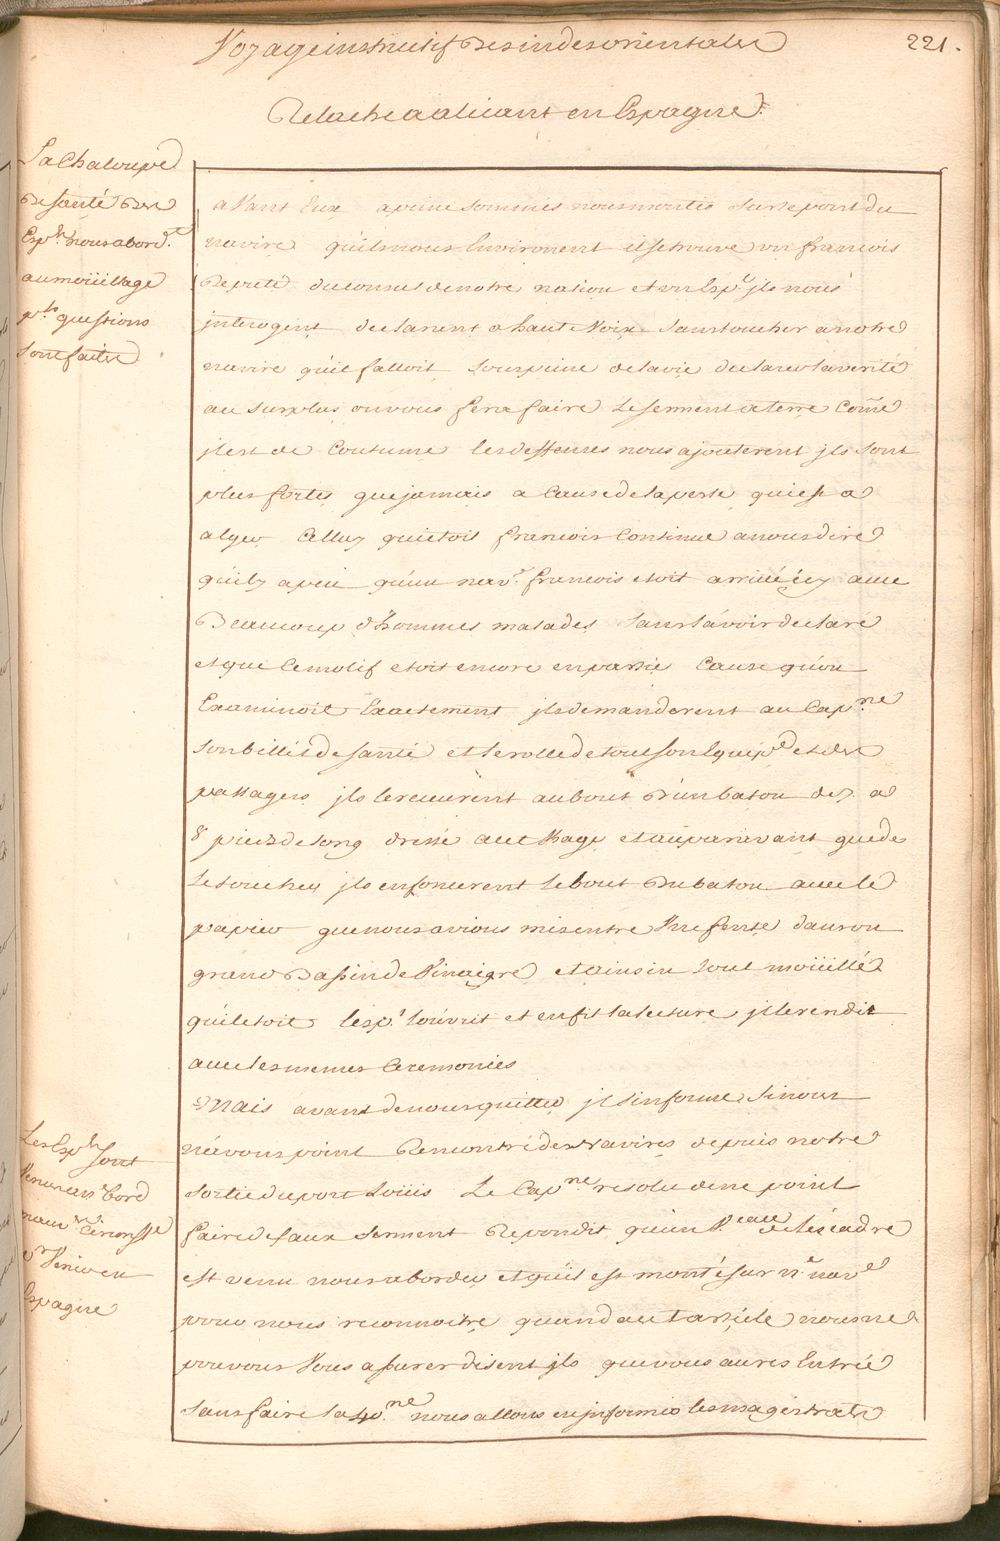 Voyage instructif Des indes orientales
221.
Relache a alicant en Espagne
La Chaloupe
De santé Des
Esp.ls nous abord.e
au moüillage
p.les questions
sont faites
avant Eux a peine sommes nous montés sur le pont du
navire qu'ils nous Environnent il se trouve un francois
Deputé du consul de notre nation et un Esp.l jls nous
jnterogent declarent a haute Voix sans toucher a notre
navire qu'il falloit sous peine de la vie declarer la verité
au surplus on vous fera faire le serment a terre Coñe
jl est de Coutume les deffences nous ajouterent jls sont
plus fortes que jamais a Cause de la peste qui est a
alger Celluy qui etoit francois Continue a nous dire
qu'il y a peu qu'un nav.e francois etoit arrivé jcy avec
Beaucoup d'hommes malades sans l'avoir declaré
et que Ce motif etoit encore en partie Cause qu'on
Examinoit Exactement jls demanderent au Cap.ne
son billet de santé et le rolle de tout son Equip.e et des
passagers jls le receurent au bout D'un baton de 7 a
8 pieds de long dressé au et auparavant que de
le toucher jls enfoncerent le bout Du baton avec le
papier que nous avions mis entre Une fente dans un
grand Bassin de Vinaigre et ainsin tout moüillé
qu'il etoit l'esp.l l'ouvrit et en fit la lecture jl le rendit
avec les memes Ceremonies
Mais avant de nous quitter jl s'informe si nous
n'avons point Rencontré des Navires depuis notre
sortie du port Loüis Le Cap.ne resolu de ne point
faire de faux serment Repondit qu'un V.eau de l'escadre
est venu nous aborder et qu'il est monté sur n.e nav.e
pour nous reconnoitre quand a cet article nous ne
pouvons Vous assurer disent jls que vous aures Entrée
sans faire la 40.ne nous allons en jnformer les magistrats
Les Esp.ls sont
Venus a n.e bord
Venir en
Espagne